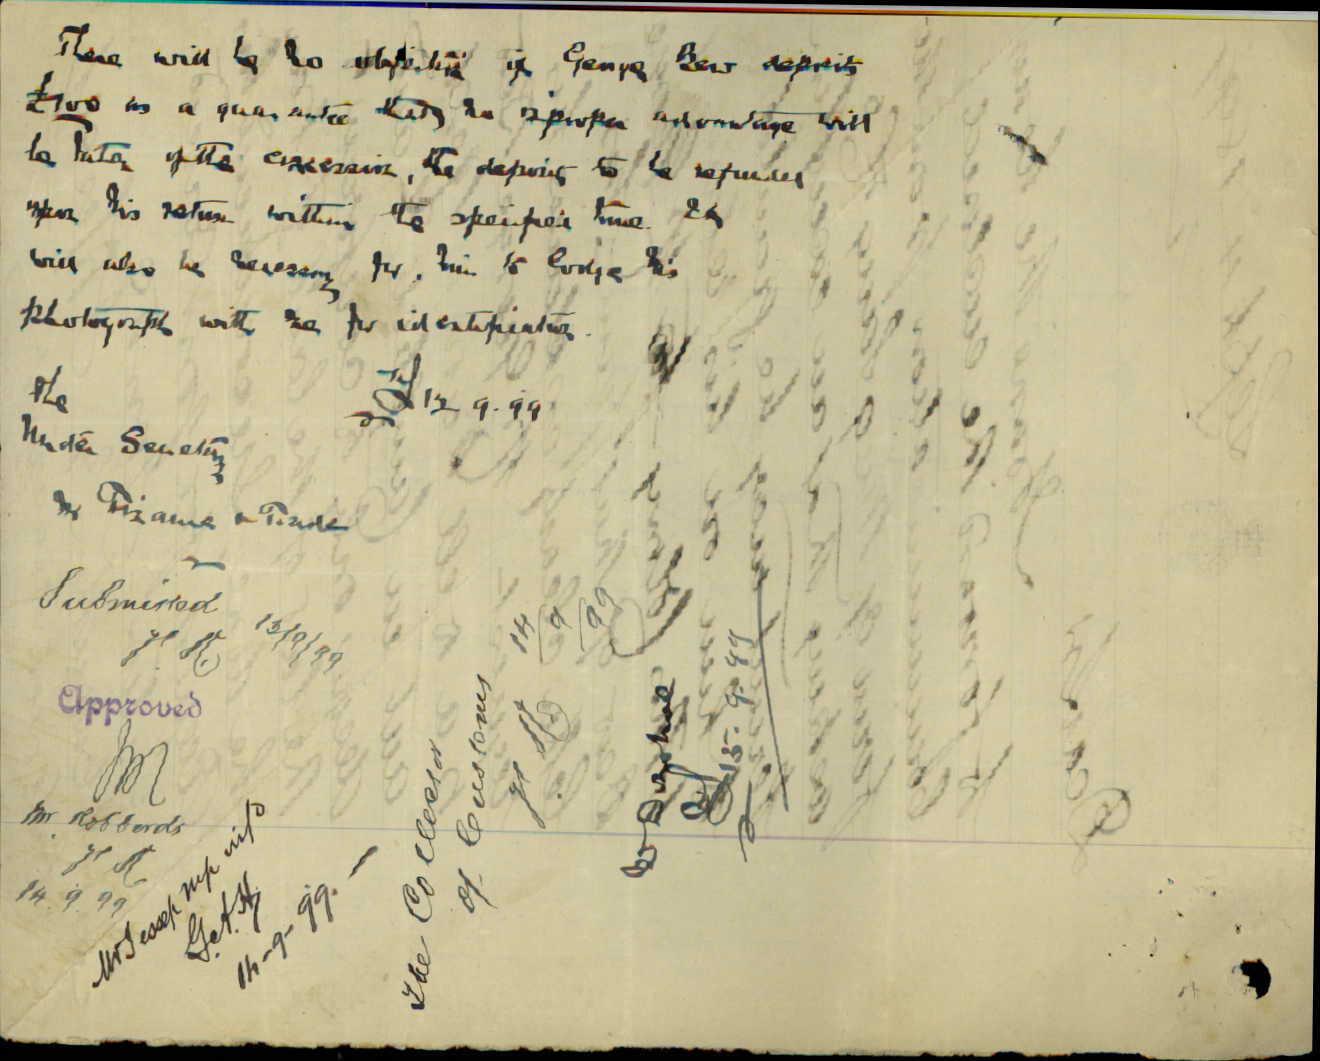 There will be no objection if George Bew deposits
£100 as a guarantee that no improper advantage will
be taken of the concession, the deposit to be refunded
upon his return within the specified time. It
will also be necessary for him to lodge his
photograph with me for identification.
12.9.99
The
Under Secretary
for Finance & Trade
Submitted
13/9/99
Approved
Mr. Robberds
14.9.99
Mr Jessep M.P. info
G.A.H.
14-9-99.
The Collector
of Customs
14/9/99
15.9.99